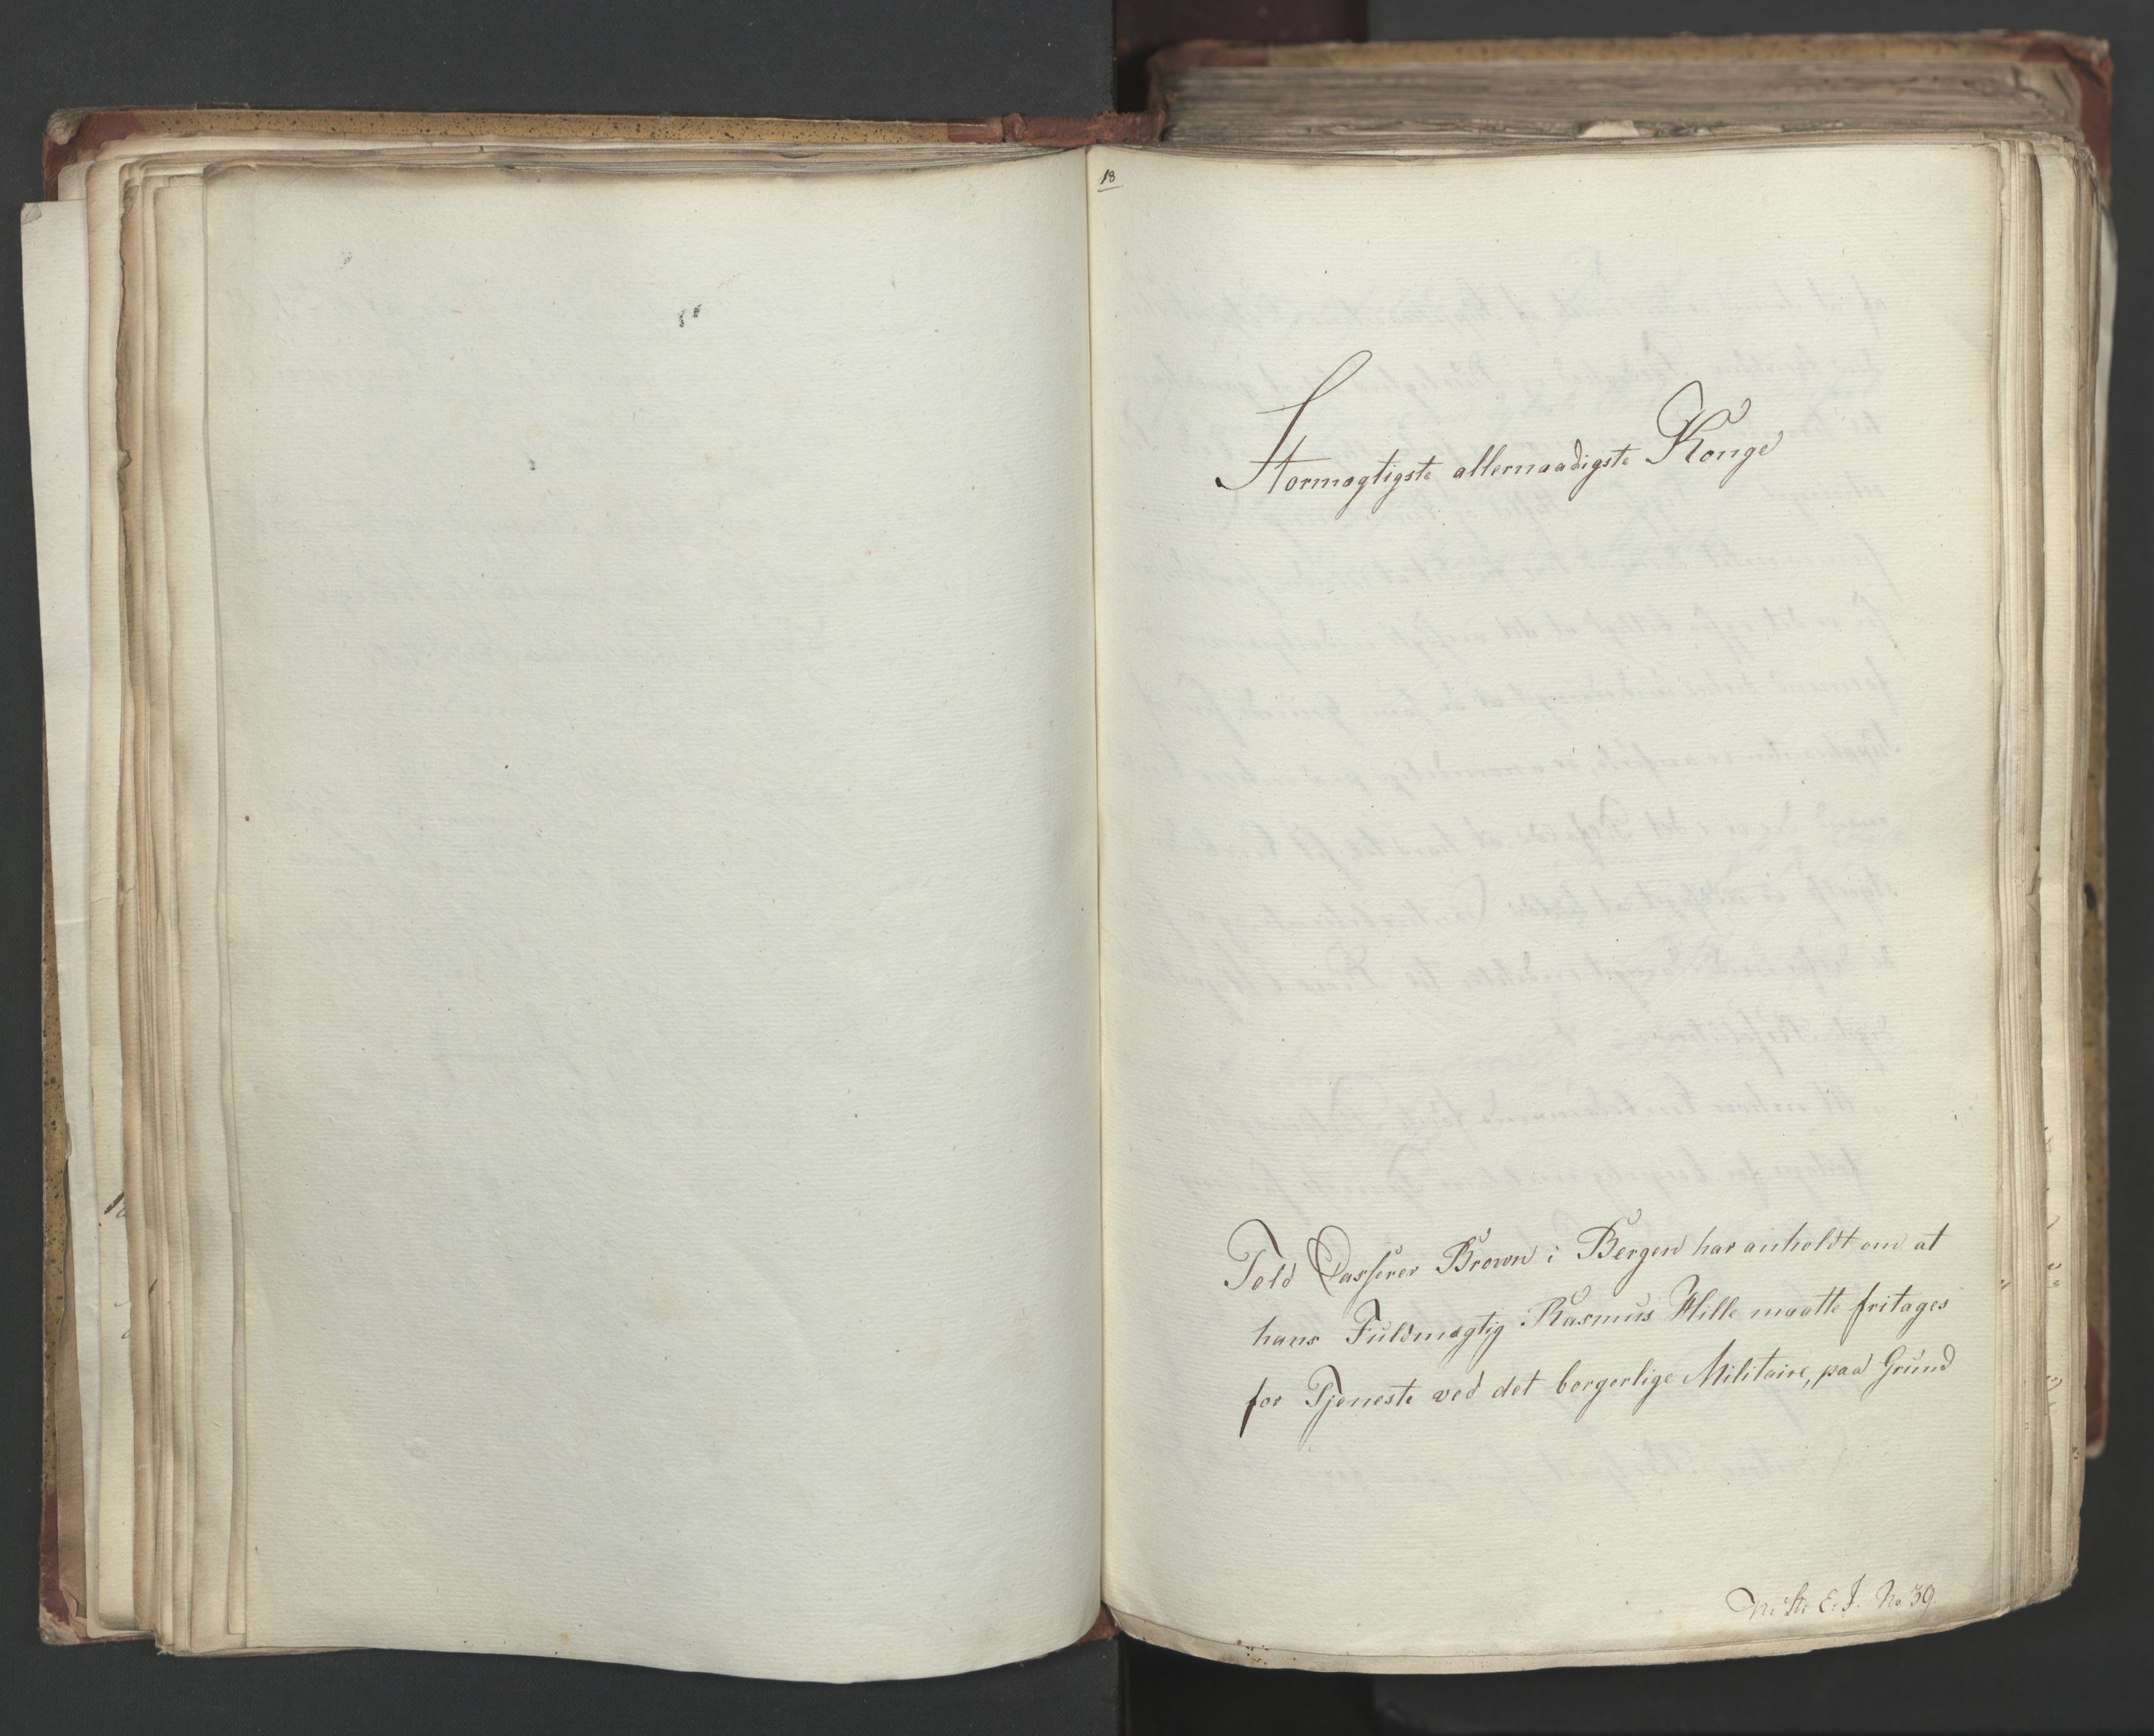 18
Stormægtigste allernaadigste Konge
Told Casserer Brown i Bergen har anholdt om at
hans Fuldmægtig Rasmus Hille maatte fritages
for Tjeneste ved det borgerlige Militaire, paa Grund
E. J. No 39.